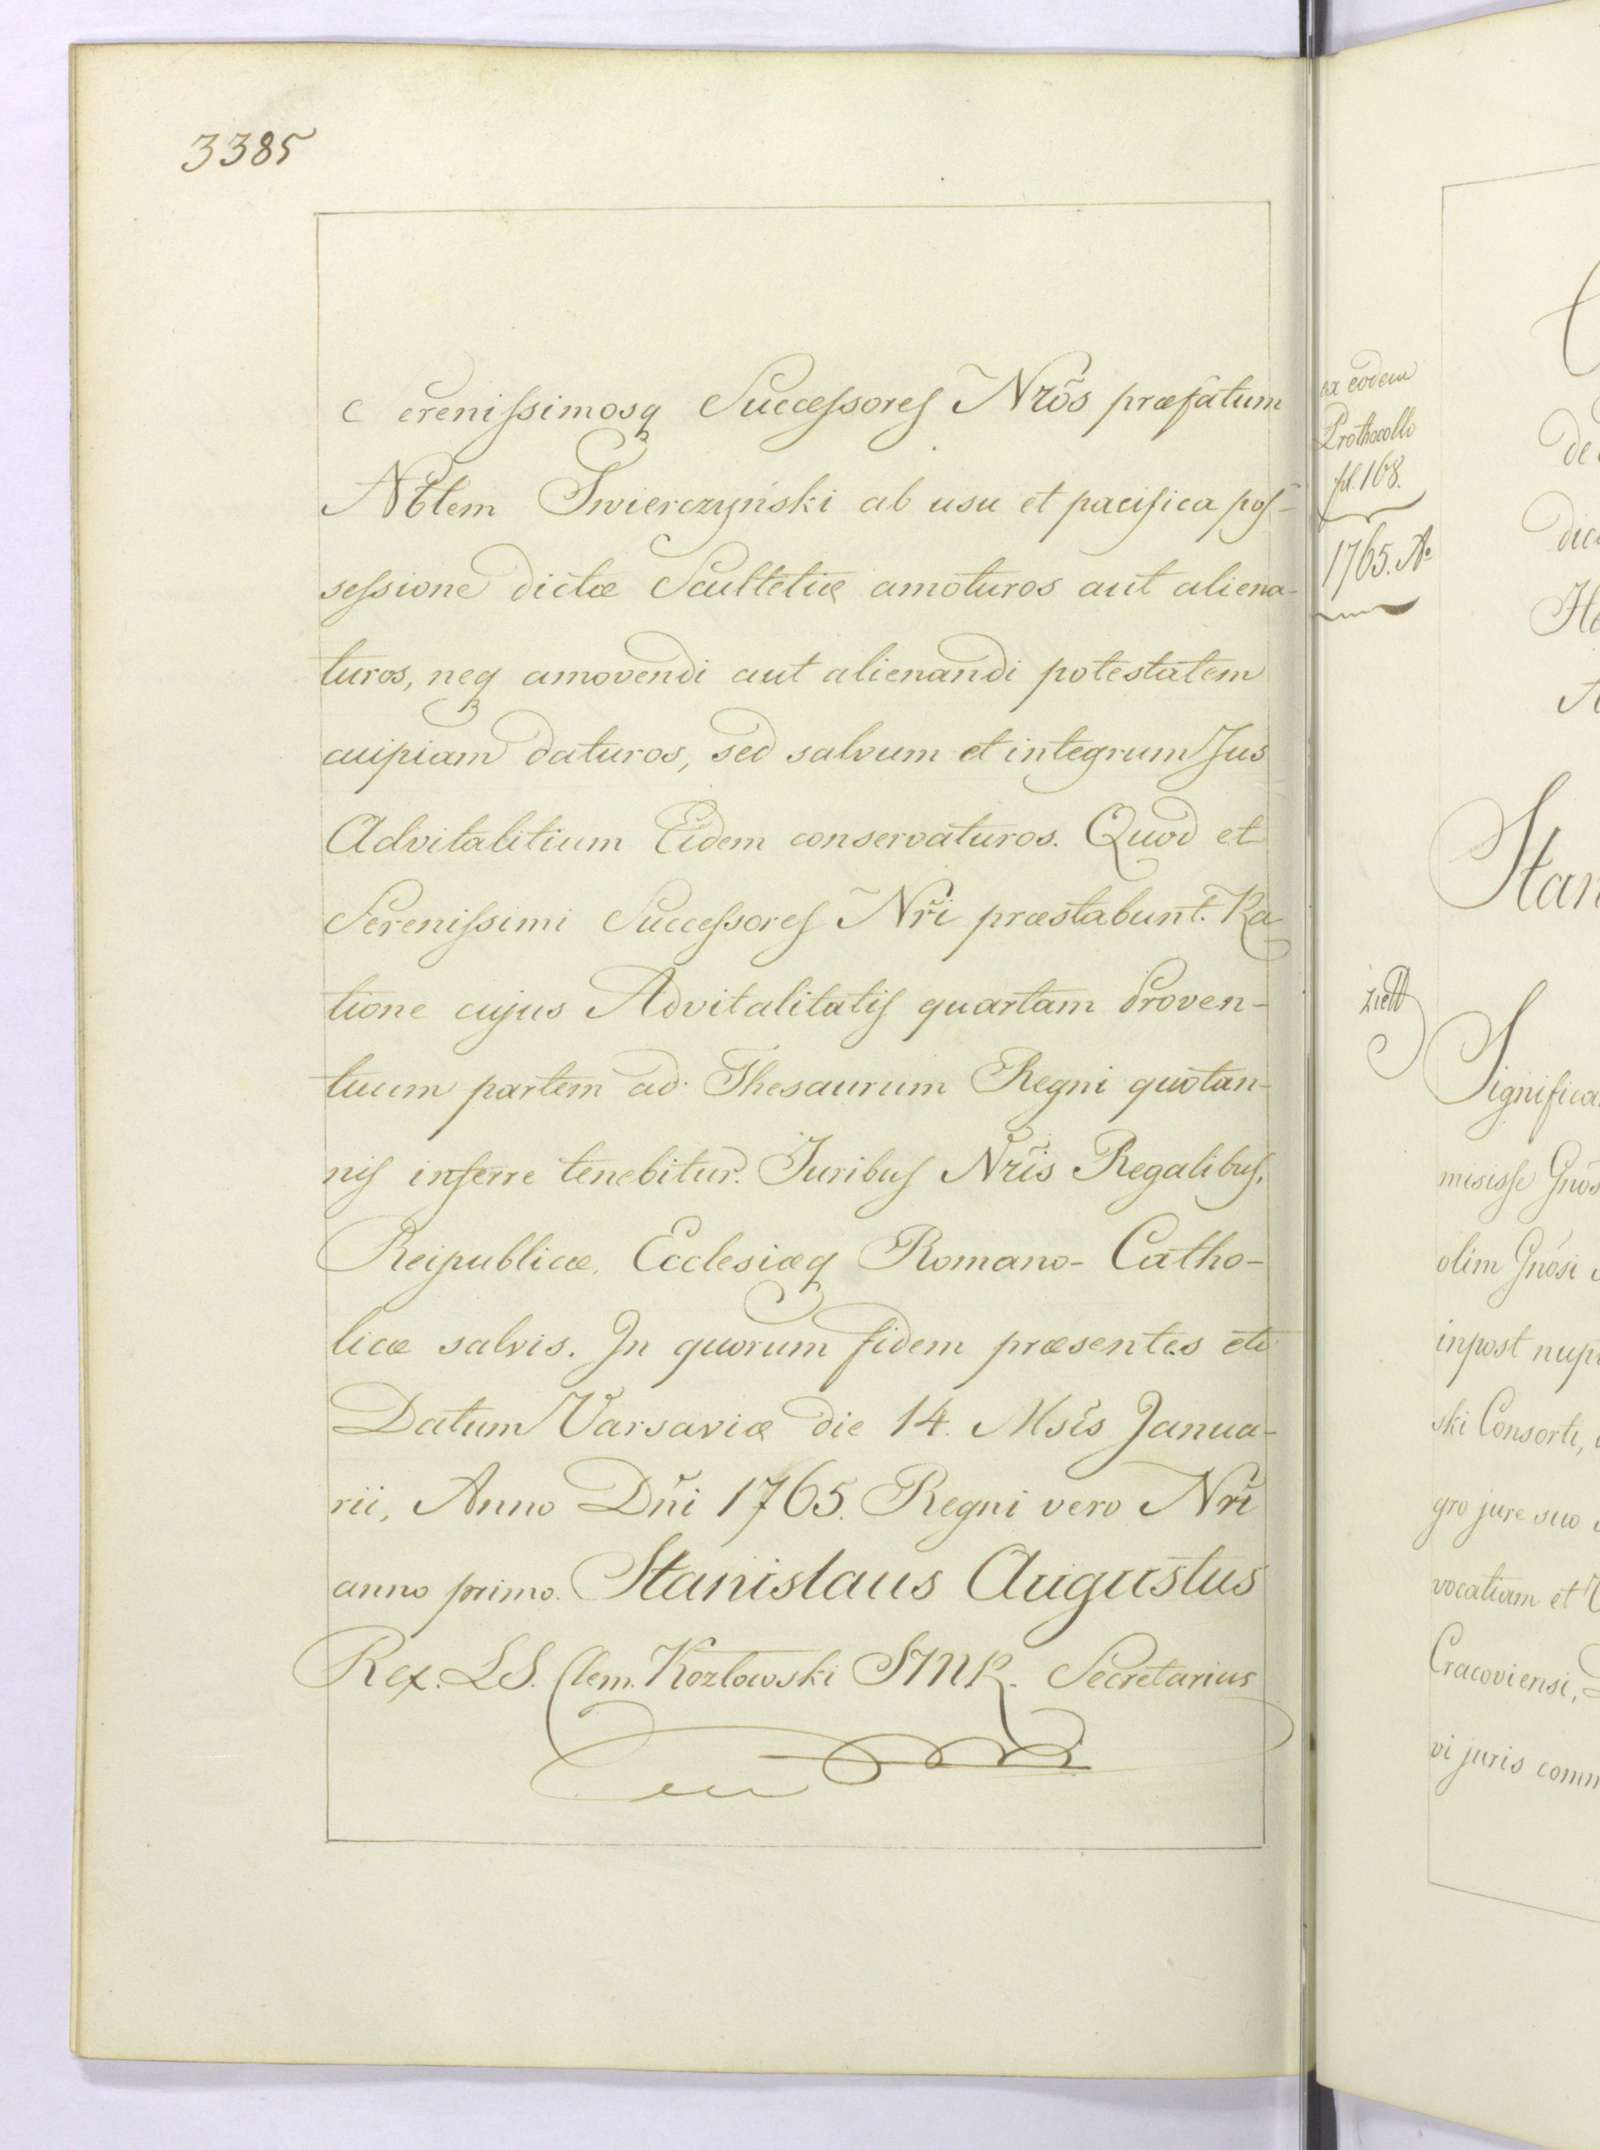 3385
erenissimosq Successores Nrõs præfatum
Nblem Swierczyński ab usu et pacifica pos-
sessione dictæ Scultetiæ amoturos aut aliena-
turos, neq amovendi aut alienandi potestatem
cuipiam daturos, sed salvum et integrum Jus
Advitalitium Eidem conservaturos. Quod et
Serenissimi Successores Nři præstabunt. Ra
tione cujus Advitalitatis quartam Proven-
tuum partem ad Thesaurum Regni quotan-
nis inferre tenebitur. Juribus Nřis Regalibus,
Reipublicæ, Ecclesiæq Romano- Catho-
licæ salvis. In quorum fidem præsentes etc
Datum Varsaviæ die 14. Msis Janua-
rii, Anno Dňi 1765. Regni vero Nři
anno primo. Stanislaus Augustus
Rex. LS. Clem. Kozlowski SMR. Secretarius
ex eodem
Prothocollo
fol. 168.
1765. Aº
Stan
Significa
misisse Gnõs
olim Gnõsi
inpost nup
ski Consorti,
gro jure suo
vocatiam et
Cracoviensi,
vi juris comm